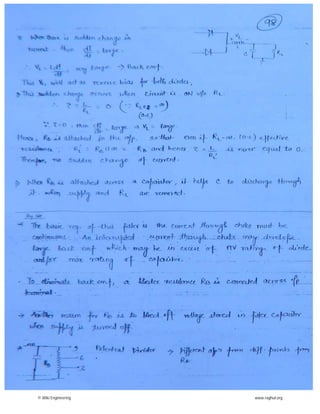 98
When there is sudden change in
current then di/dt large.
∴ VL = L di/dt very large → Back emf.
This VL will act as reverse bias for both diodes,
This sudden change occurs when circuit is ON o/p RL
∴ τ = L/R = 0 (∵ RL = ∞)
(o.c)
∵ τ = 0 di/dt large & VL = large
Hence, RB is attached in the o/p, so that even if RL = ∞ (o.c) effective
resistance RL' = RB || ∞ = RB and hence τ = L/RL' is never equal to 0.
Therefore no sudden change of current.
When RB is attached across a capacitor, it helps C to discharge through
it when supply and RL are removed.
The basic req. of this filter is the current through choke must be
continuous. An interrupted current through choke may develop
large back emf which may be in excess of PIV rating of diode
and/or max rating of capacitor.
To eliminate back emf, a bleeder resistance RB is connected across o/p
terminal.
Another reason for RB is to bleed off voltage stored in filter capacitor
when supply is turned off.
Potential Divider → Different o/p's from diff. points from
RB
© Wiki Engineering
www.raghul.org